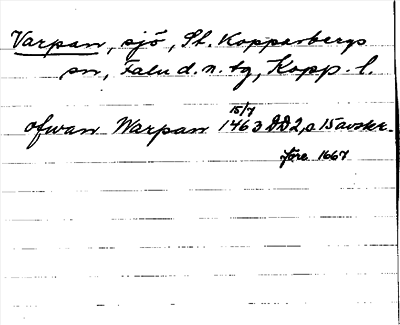 Varpan, sjö, St. Kopparbergs
sn, Falu d.n. tg, Kopp. l.
15/7
ofwan Warpan 1463 DD2, a 15 avskr.
före 1667